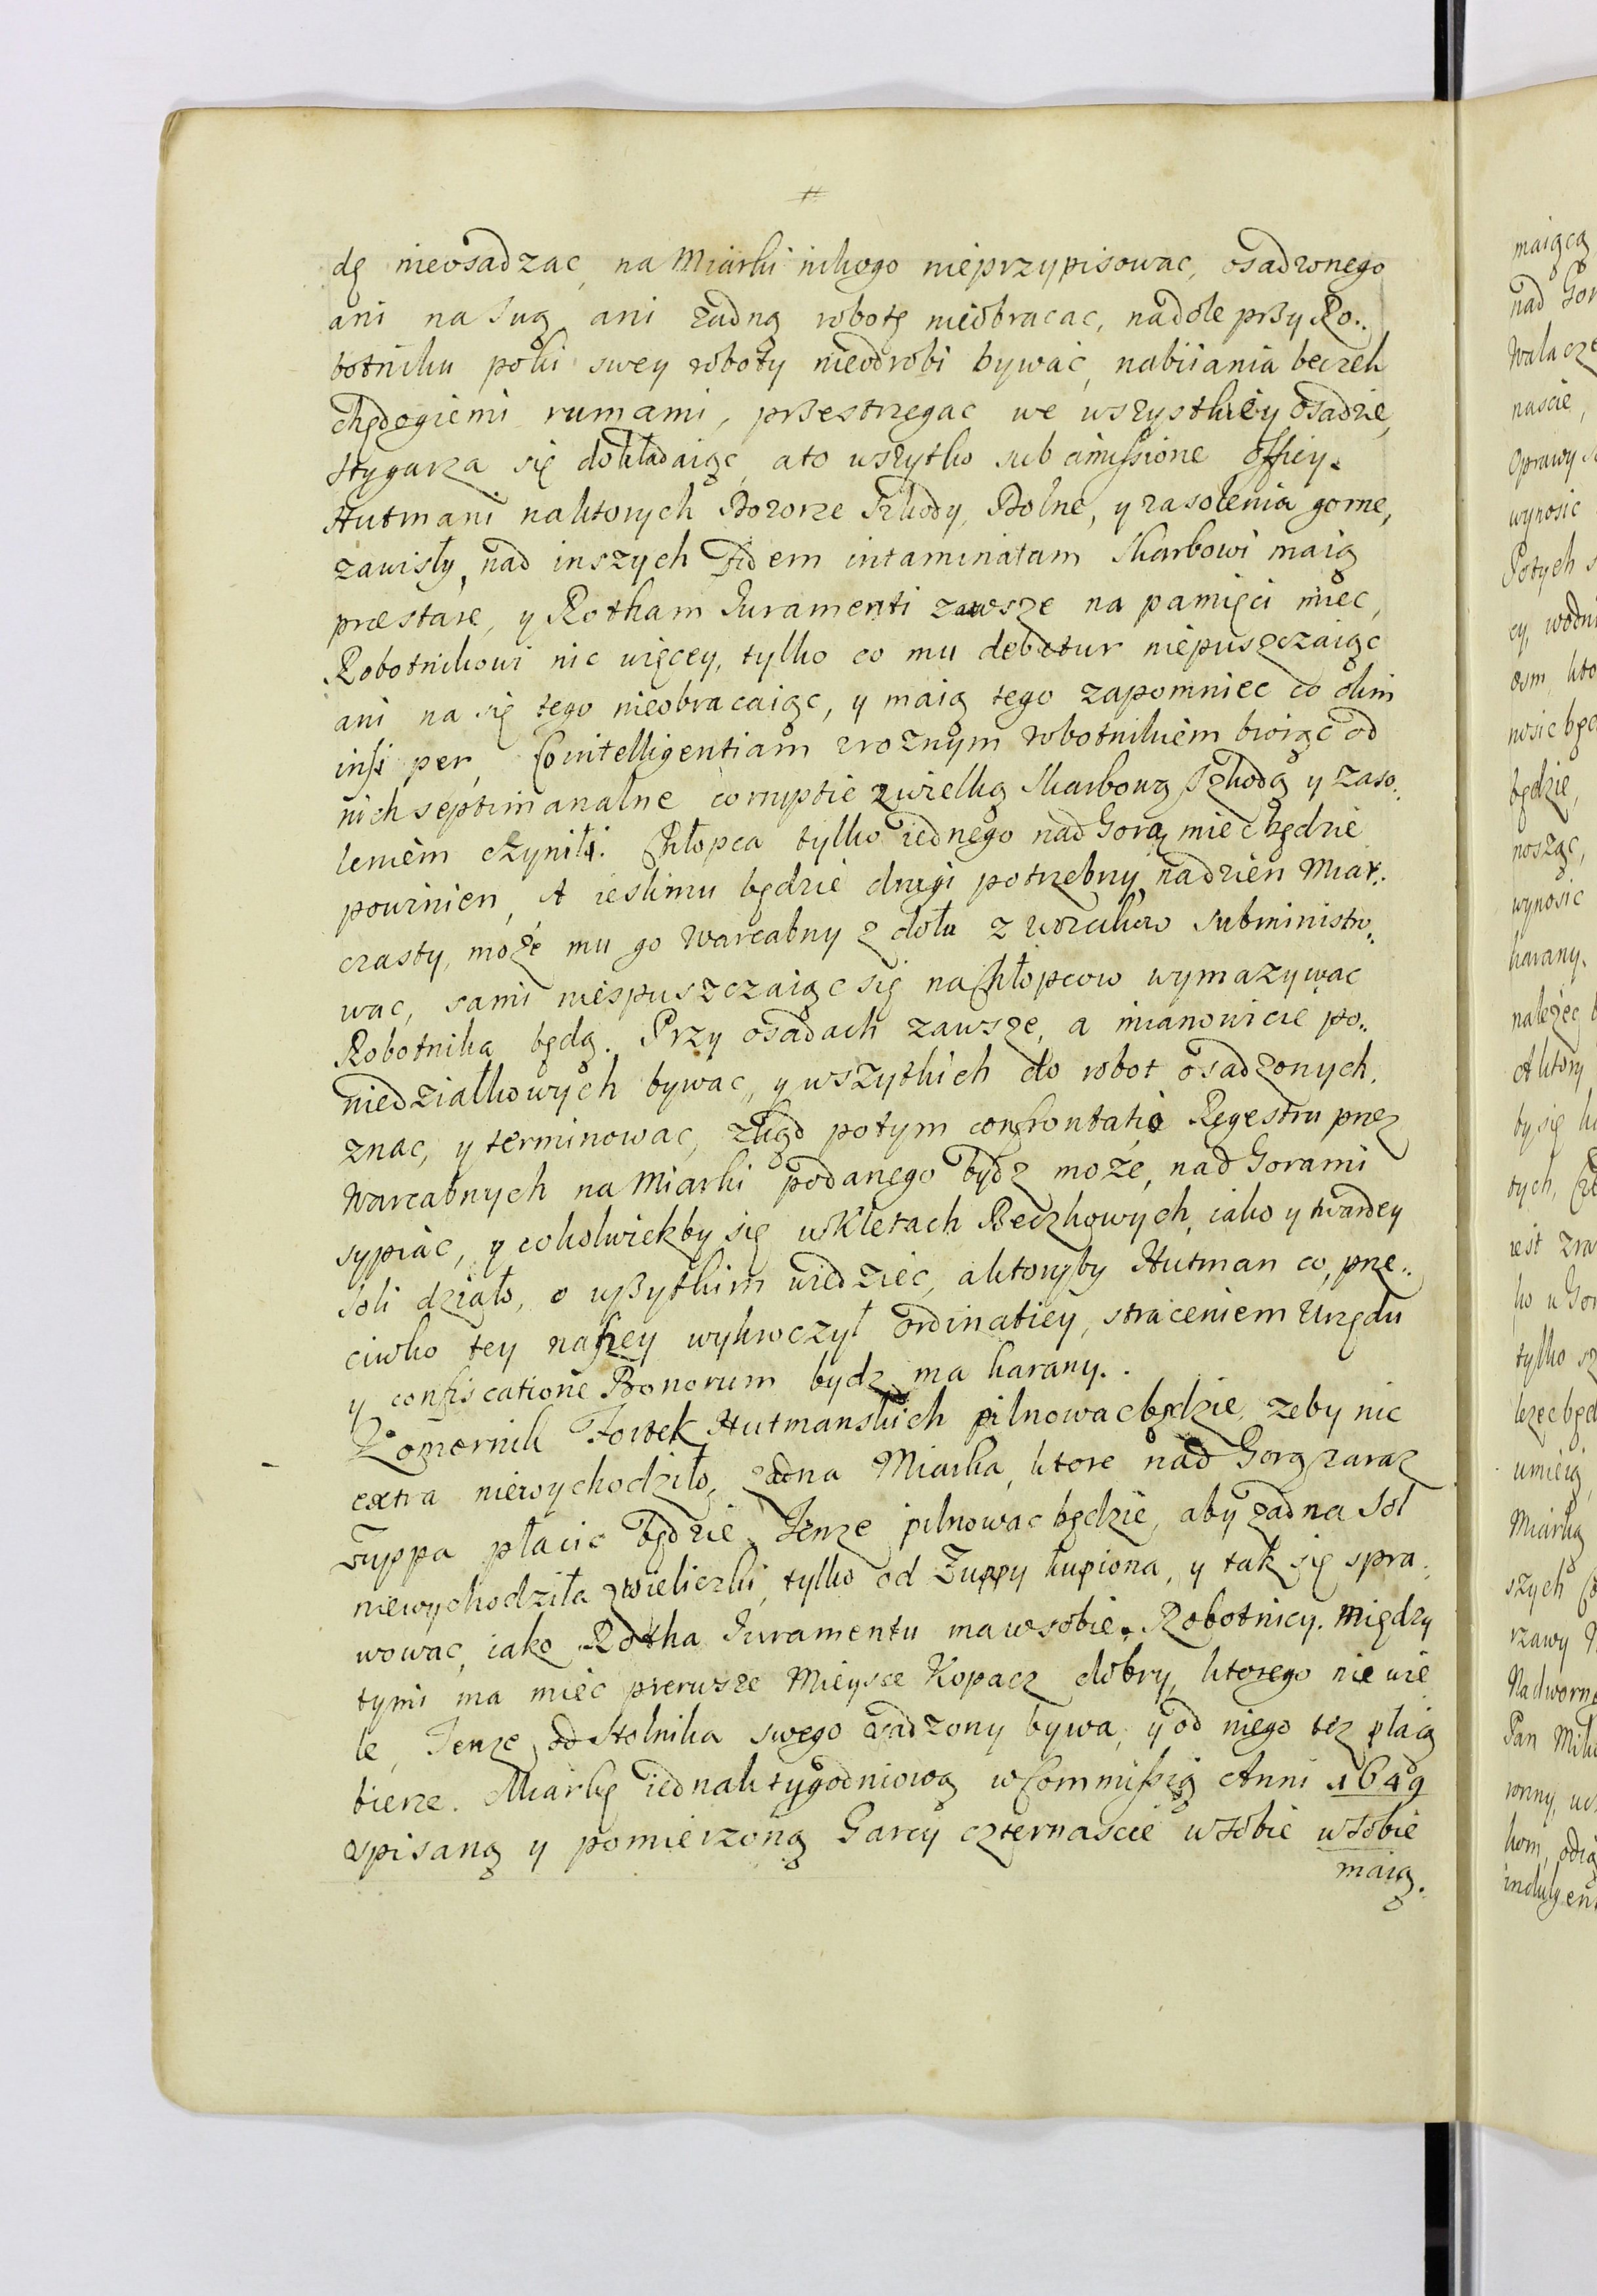 dę nieosadzac, na Miarki nikogo nieprzypisowac, osadzonego
ani na Sug ani żadną robotę nieobracac, nadole przy Ro..
botniku poki swey roboty nieodrobi bywać, nabiiania beczek
chędogiemi rumami, przestrzegac we wszystkiey osadzie,
Stygarza się dokładaiąc, ato wszytko sub amissione officy.
Hutmani naktorych Dozorze Szkody, Dolne, y zasolenia gorne,
zawisły, nad inszych Fidem intaminatam Skarbowi maią
præstare, y Rotham Juramenti zawsze na pamięci miec,
Robotnikowi nic więcey, tylko co mu debetur niepuszczaiąc
ani na się tego nieobracaiąc, y maią tego zapomniec co olim
insi per Cointelligentiam zroznym robotnikiem biorąc od
nich septimanalne corruptie zwielką Skarbową szkodą y zaso..
leniem czynili. Chłopca tylko iednego nad Gorą miec będzie
powinien, A ieslimu będzie drugi potrzebny nadzien Miar..
czasty, może mu go Warcabny z dołu z wozakow subministro..
wac, sami niespuszczaiąc się na Chłopcow wymazywac
Robotnika będą. Przy osadach zawsze, a mianowicie po..
niedziałkowych bywac, y wszytkich do robot osadzonych,
znac, y terminowac, zkąd potym confrontatio Regestru przez
Warcabnych na Miarki podanego bydz może, nad Gorami
sypiac, y cokolwiekby się wKletach Beczkowych, iako y twardey
Soli działo, o wszytkim wiedziec, aktoryby Hutman co, prze..
ciwko tey naszey wykroczył ordinatiey, straceniem Urzędu
y confiscatione Bonorum bydz ma karany..
Komornik Fortek Hutmanskich pilnowac będzie, zeby nic
extra niewychodziło, zadna Miarka, ktore nad Gorą zaraz
Zuppa płacic będzie. Tenze pilnowac będzie, aby zadna Sol
niewychodziła zwieliczki, tylko od Zuppy kupiona, y tak się spra..
wowac, iako Rotha Juramentu ma wsobie. Robotnicy. Między
tymi ma miec pierwsze Mieysce Kopacz dobry, ktorego nie wie
le, Tenze od Stolnika swego osadzony bywa, y od niego tez płaią
bierze. Miarkę iednak tygodniową wCommissią Anni 1649
opisaną y pomierzoną Garcy czternascie wsobie wsobie
maią.